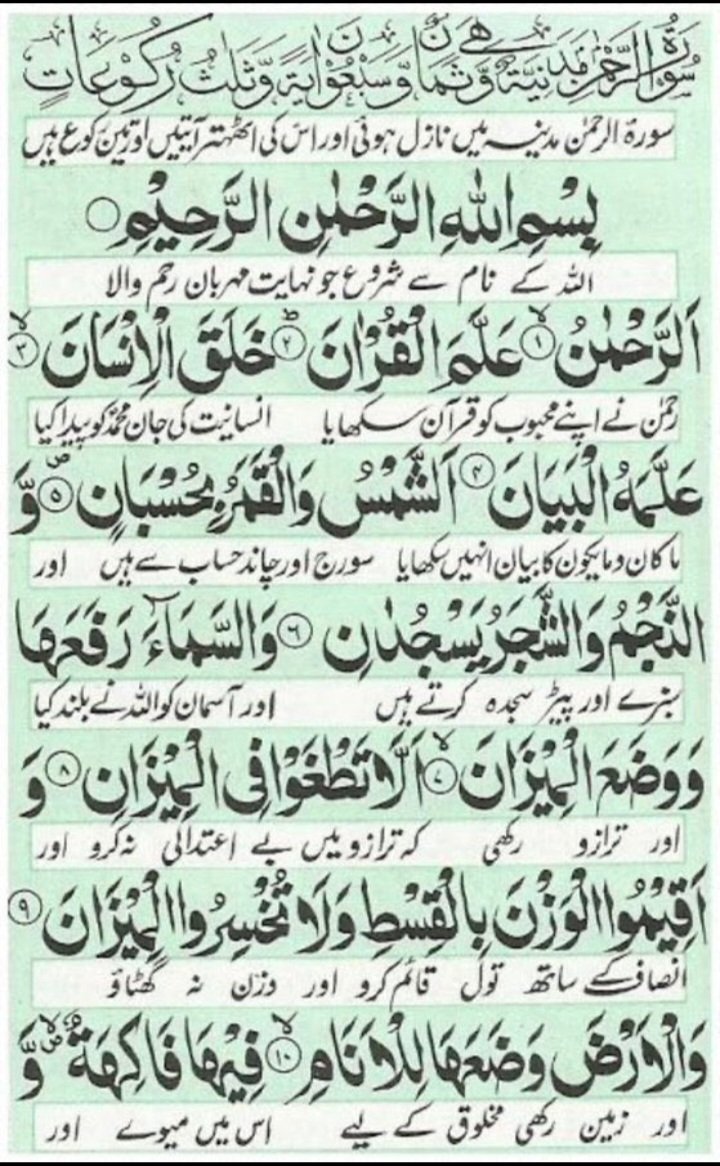 سُوْرَةُ الرَّحْمٰنِ مَدَنِيَّةٌ وَّهِيَ ثَمَانٌ وَّسَبْعُوْنَ اٰيَةً وَّثَلٰثُ رُكُوْعَاتٍ
سورۃ الرحمٰن مدینہ میں نازل ہوئی اور اس کی اٹھتر آیتیں اور تین رکوع ہیں
بِسْمِ اللهِ الرَّحْمٰنِ الرَّحِيْمِ ○
اللہ کے نام سے شروع جو نہایت مہربان رحم والا
اَلرَّحْمٰنُ ۙ﴿۱﴾ عَلَّمَ الْقُرْاٰنَ ؕ﴿۲﴾ خَلَقَ الْاِنْسَانَ ۙ﴿۳﴾
رحمٰن نے اپنے محبوب کو قرآن سکھایا انسانیت کی جان محمد کو پیدا کیا
عَلَّمَهُ الْبَيَانَ ﴿۴﴾ اَلشَّمْسُ وَالْقَمَرُ بِحُسْبَانٍ ۪﴿۵﴾ وَّ
ما کان وما یکون کا بیان انہیں سکھایا سورج اور چاند حساب سے ہیں اور
النَّجْمُ وَالشَّجَرُ يَسْجُدٰنِ ﴿۶﴾ وَالسَّمَآءَ رَفَعَهَا
سبزے اور پیڑ سجدہ کرتے ہیں اور آسمان کو اللہ نے بلند کیا
وَوَضَعَ الْمِيْزَانَ ۙ﴿۷﴾ اَلَّا تَطْغَوْا فِى الْمِيْزَانِ ﴿۸﴾ وَ
اور ترازو رکھی کہ ترازو میں بے اعتدالی نہ کرو اور
اَقِيْمُوا الْوَزْنَ بِالْقِسْطِ وَلَا تُخْسِرُوا الْمِيْزَانَ ﴿۹﴾
انصاف کے ساتھ تول قائم کرو اور وزن نہ گھٹاؤ
وَالْاَرْضَ وَضَعَهَا لِلْاَنَامِ ۙ﴿۱۰﴾ فِيْهَا فَاكِهَةٌ ۪ۙ وَّ
اور زمین رکھی مخلوق کے لیے اس میں میوے اور